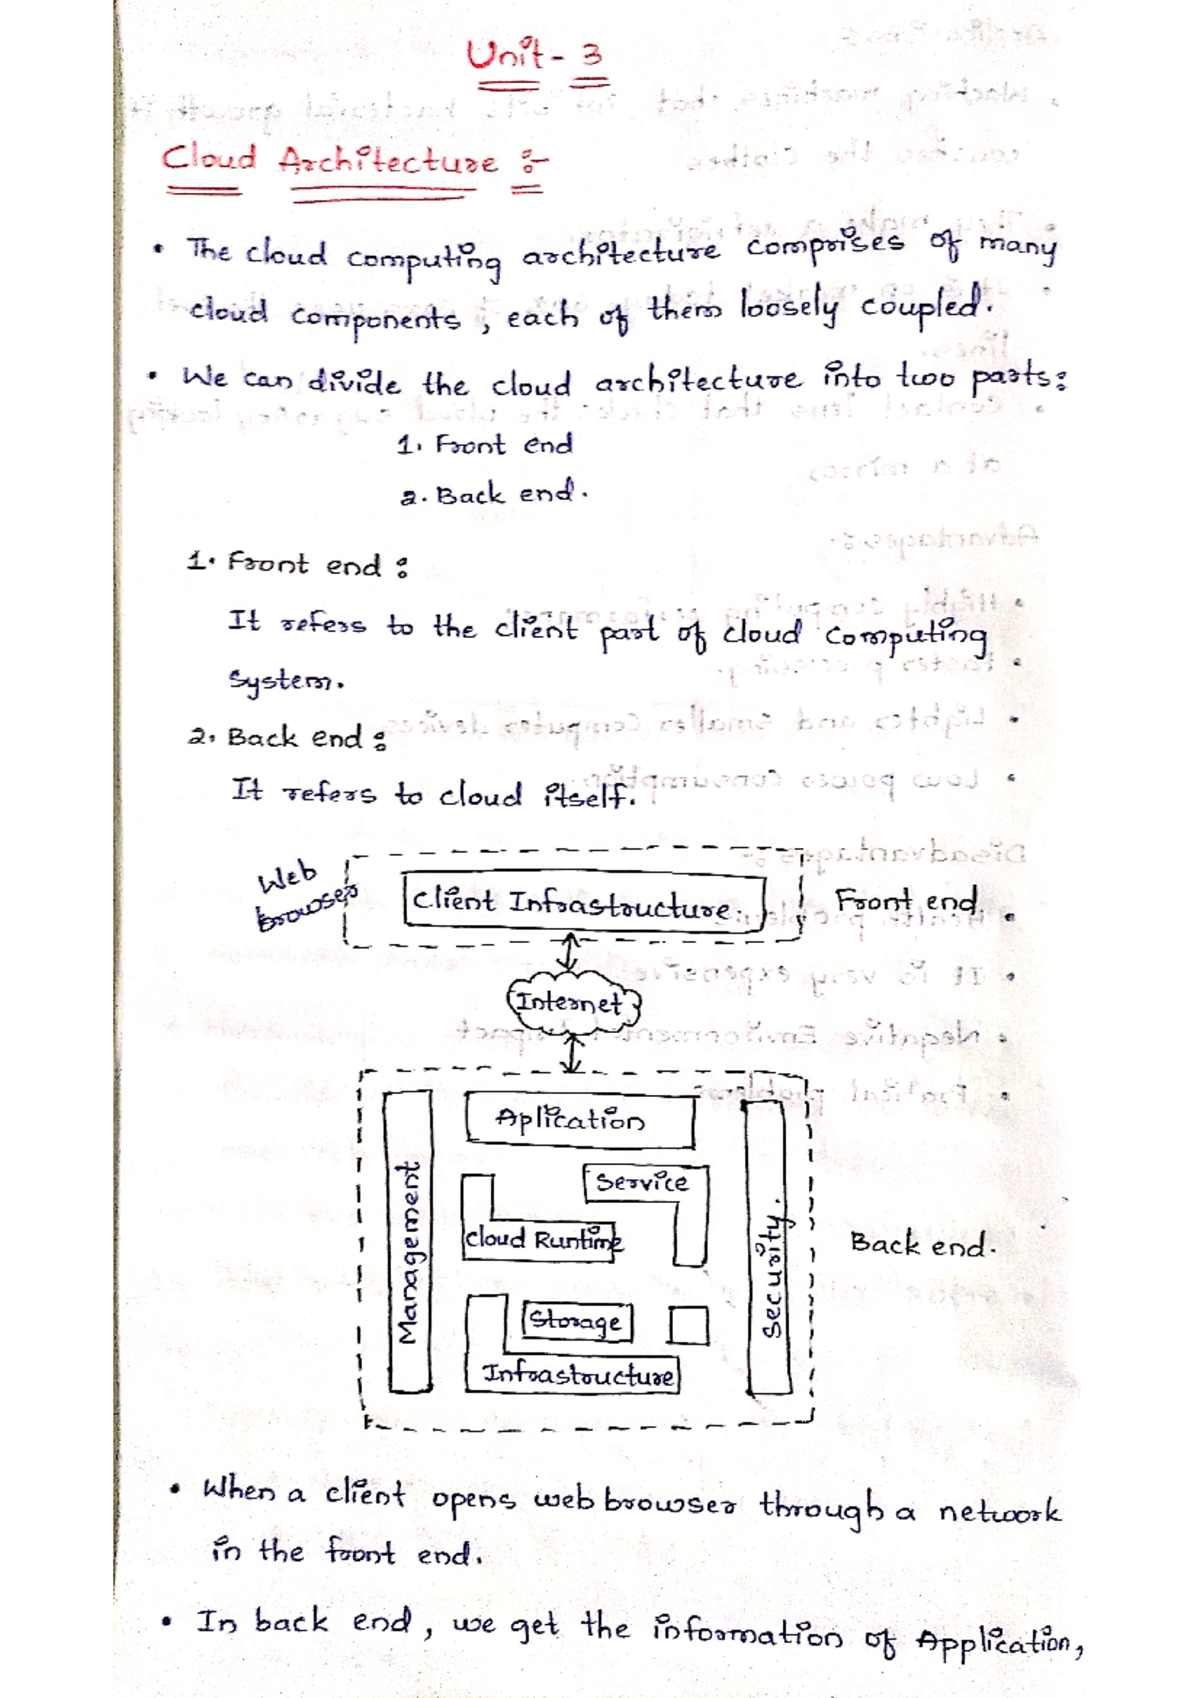 Unit - 3
Cloud Architecture :-
• The cloud computing architecture comprises of many
cloud components, each of them loosely coupled.
• We can divide the cloud architecture into two parts:
1. Front end
2. Back end.
1. Front end :
It refers to the client part of cloud computing
System.
2. Back end :
It refers to cloud itself.
Web
browser
Client Infrastructure.
Front end
Internet
Aplication
Service
Management
Cloud Runtime
Security.
Back end.
Storage
Infrastructure
• When a client opens web browser through a network
in the front end.
• In back end, we get the information of Application,